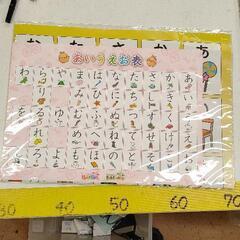 あいうえお表
あいうえお
かきくけこ
さしすせそ
たちつてと
なにぬねの
はひふへほ
まみむめも
やゆよ
らりるれろ
わをん
30 40 50 60 70